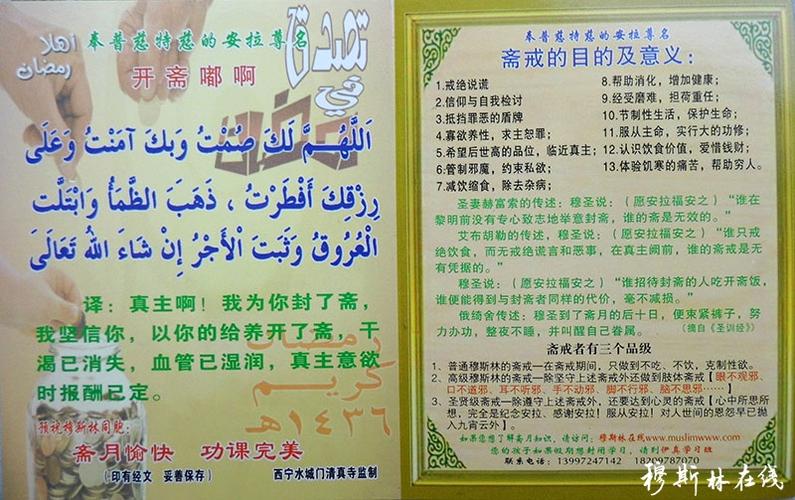 اهلا
رمضان
奉普慈特慈的安拉尊名
开斋嘟啊
تصدق
في
رمضان
اَللّٰهُمَّ لَكَ صُمْتُ وَبِكَ آمَنْتُ وَعَلَى
رِزْقِكَ أَفْطَرْتُ ، ذَهَبَ الظَّمَأُ وَابْتَلَّتِ
الْعُرُوقُ وَثَبَتَ الْأَجْرُ إِنْ شَاءَ اللهُ تَعَالَى
译：真主啊！我为你封了斋，
我坚信你，以你的给养开了斋，干
渴已消失，血管已湿润，真主意欲
时报酬已定。
رمضان
كريم
١٤٣٦هـ
预祝穆斯林同胞：
斋月愉快 功课完美
（印有经文 妥善保存） 西宁水城门清真寺监制
奉普慈特慈的安拉尊名
斋戒的目的及意义：
1.戒绝说谎
2.信仰与自我检讨
3.抵挡罪恶的盾牌
4.寡欲养性，求主恕罪；
5.希望后世高的品位，临近真主；
6.管制邪魔，约束私欲；
7.减饮缩食，除去杂病；
8.帮助消化，增加健康；
9.经受磨难，担荷重任；
10.节制性生活，保护生命；
11.服从主命，实行大的功修；
12.认识饮食价值，爱惜钱财；
13.体验饥寒的痛苦，帮助穷人。
圣妻赫富索的传述：穆圣说：（愿安拉福安之）“谁在
黎明前没有专心致志地举意封斋，谁的斋是无效的。”
艾布胡勒的传述，穆圣说：（愿安拉福安之）“谁只戒
绝饮食，而无戒绝谎言和恶事，在真主阙前，谁的斋戒是没
有凭据的。”
穆圣说：（愿安拉福安之）“谁招待封斋的人吃开斋饭，
谁便能得到与封斋者同样的代价，毫不减损。”
俄绮舍传述：穆圣到了斋月的后十日，便束紧裤子，努
力办功，整夜不睡，并叫醒自己眷属。 （摘自《圣训经》）
斋戒者有三个品级
1、普通穆斯林的斋戒—在斋戒期间，只做到不吃、不饮，克制性欲。
2、高级穆斯林的斋戒—除坚守上述斋戒外还做到肢体斋戒【眼不观邪、
口不道邪、耳不听邪、手不动邪、脚不行邪、脑不思邪……】
3、圣贤级斋戒—除遵守上述斋戒外，还要达到心灵的斋戒【心中所思所
想，完全是纪念安拉、感谢安拉！服从安拉！对人世间的恩怨早已抛
入九霄云外】。
如果您想了解斋月知识，请访问：穆斯林在线www.muslimwww.com
您的孩子如果假期想封闭学习，请到伊真学习班
联系电话：13997247142 18209787070
穆斯林在线